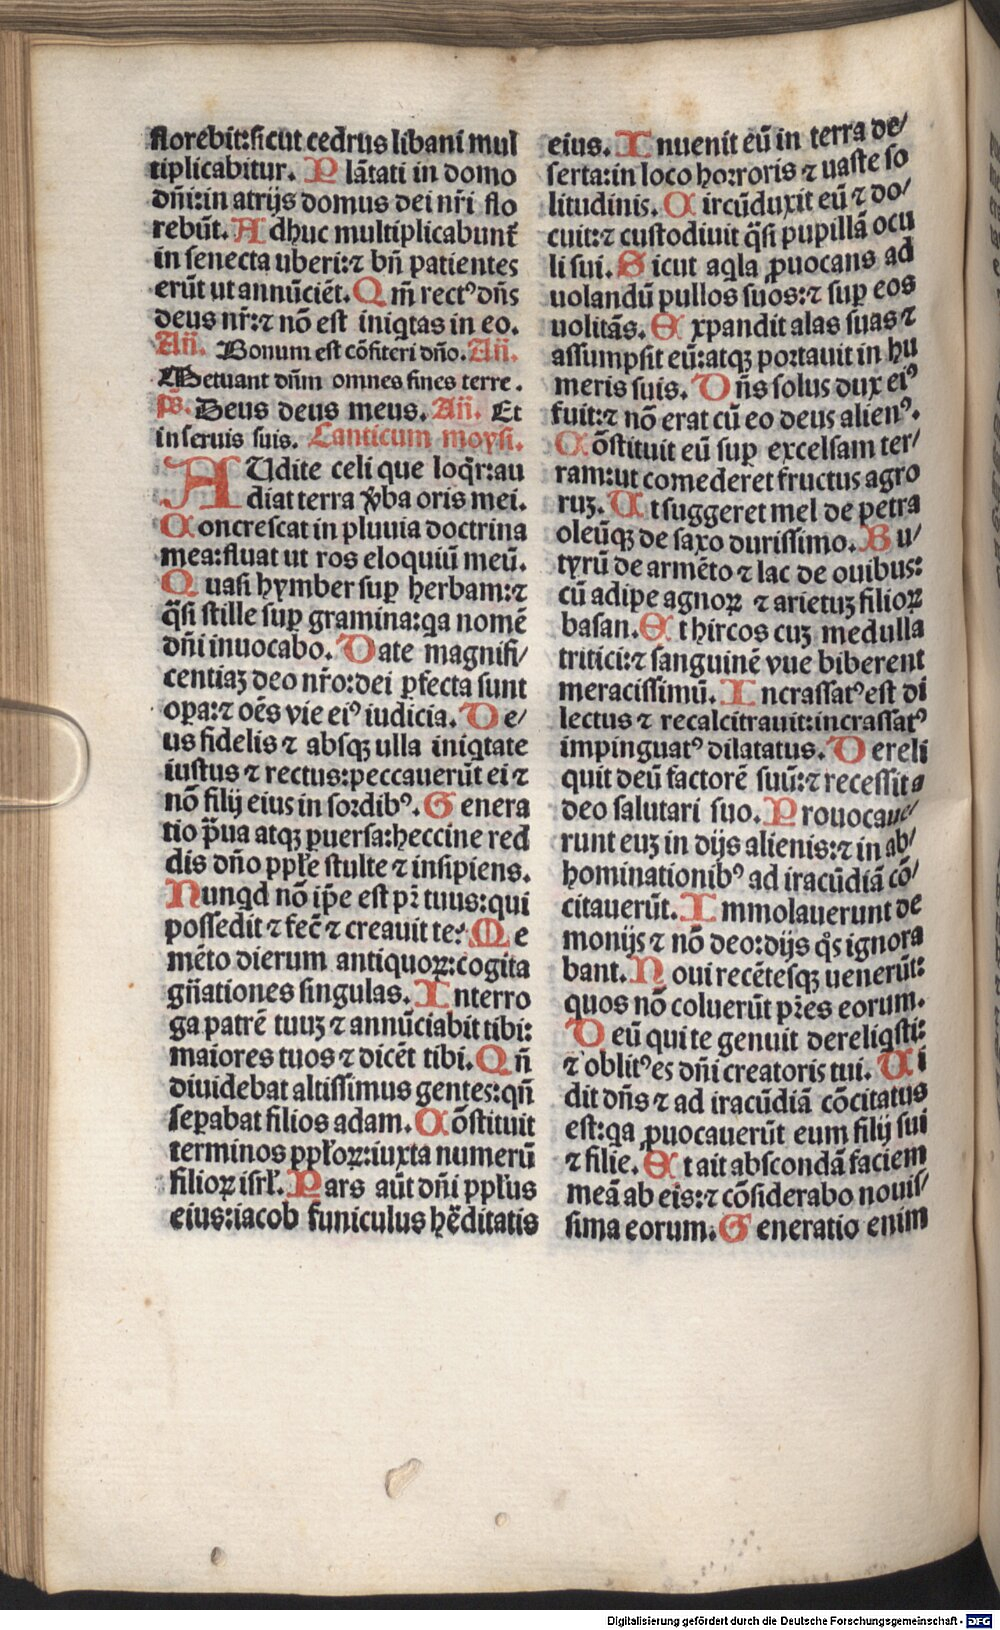 florebit:sicut cedrus libani mul
tiplicabitur. Plātati in domo
dn̄i:in atrijs domus dei nr̄i flo
rebūt. Adhuc multiplicabunt᷑
in senecta uberi:⁊ bn̄ patientes
erūt ut annūciēt. Qm̄ rectꝰ dn̄s
deus nr̄:⁊ nō est iniqtas in eo.
An̄. Bonum est cōfiteri dn̄o. An̄.
Metuant dn̄m omnes fines terre.
ps̄. Deus deus meus. An̄. Et
in seruis suis. Canticum moysi.
AUdite celi que loq̄r:au
diat terra v̄ba oris mei.
Concrescat in pluuia doctrina
mea:fluat ut ros eloquiū meū.
Quasi hymber sup herbam:⁊
q̄si stille sup gramina:qa nomē
dn̄i inuocabo. Date magnifi/
centiaꝫ deo nr̄o:dei ꝑfecta sunt
oꝑa:⁊ oēs vie eiꝰ iudicia. De/
us fidelis ⁊ absqꝫ ulla iniqtate
iustus ⁊ rectus:peccauerūt ei ⁊
nō filij eius in sordibꝰ. Genera
tio p̄ua atqꝫ ꝑuersa:heccine red
dis dn̄o ppl̄e stulte ⁊ insipiens.
Nunqd nō ip̄e est pr̄ tuus:qui
possedit ⁊ fec̄ ⁊ creauit te? Me
mēto dierum antiquoꝝ:cogita
gn̄ationes singulas. Interro
ga patrē tuuꝫ ⁊ annūciabit tibi:
maiores tuos ⁊ dicēt tibi. Qn̄
diuidebat altissimus gentes:qn̄
seꝑabat filios adam. Cōstituit
terminos ppl̄oꝝ:iuxta numerū
filioꝝ isrl̄. Pars aūt dn̄i ppl̄us
eius:iacob funiculus hēditatis
eius. Inuenit eū in terra de/
serta:in loco horroris ⁊ uaste so
litudinis. Circūduxit eū ⁊ do/
cuit:⁊ custodiuit q̄si pupillā ocu
li sui. Sicut aqla ꝓuocans ad
uolandū pullos suos:⁊ suꝑ eos
uolitās. Expandit alas suas ⁊
assumpsit eū:atqꝫ portauit in hu
meris suis. Dn̄s solus dux eiꝰ
fuit:⁊ nō erat cū eo deus alienꝰ.
Cōstituit eū suꝑ excelsam ter/
ram:ut comederet fructus agro
ruꝫ. Ut suggeret mel de petra
oleūqꝫ de saxo durissimo. Bu/
tyrū de armēto ⁊ lac de ouibus:
cū adipe agnoꝝ ⁊ arietuꝫ filioꝝ
basan. Et hircos cuꝫ medulla
tritici:⁊ sanguinē vue biberent
meracissimū. Incrassatꝰ est di
lectus ⁊ recalcitrauit:incrassatꝰ
impinguatꝰ dilatatus. Dereli
quit deū factorē suū:⁊ recessit a
deo salutari suo. Prouocaue/
runt euꝫ in dijs alienis:⁊ in ab/
hominationibꝰ ad iracūdiā cō/
citauerūt. Immolauerunt de
monijs ⁊ nō deo:dijs q̊s ignora
bant. Noui recētesqꝫ uenerūt:
quos nō coluerūt pr̄es eorum.
Deū qui te genuit dereliqsti:
⁊ oblitꝰ es dn̄i creatoris tui. Ui
dit dn̄s ⁊ ad iracūdiā cōcitatus
est:qa ꝓuocauerūt eum filij sui
⁊ filie. Et ait abscondā faciem
meā ab eis:⁊ cōsiderabo nouis/
sima eorum. Generatio enim
Digitalisierung gefördert durch die Deutsche Forschungsgemeinschaft - DFG